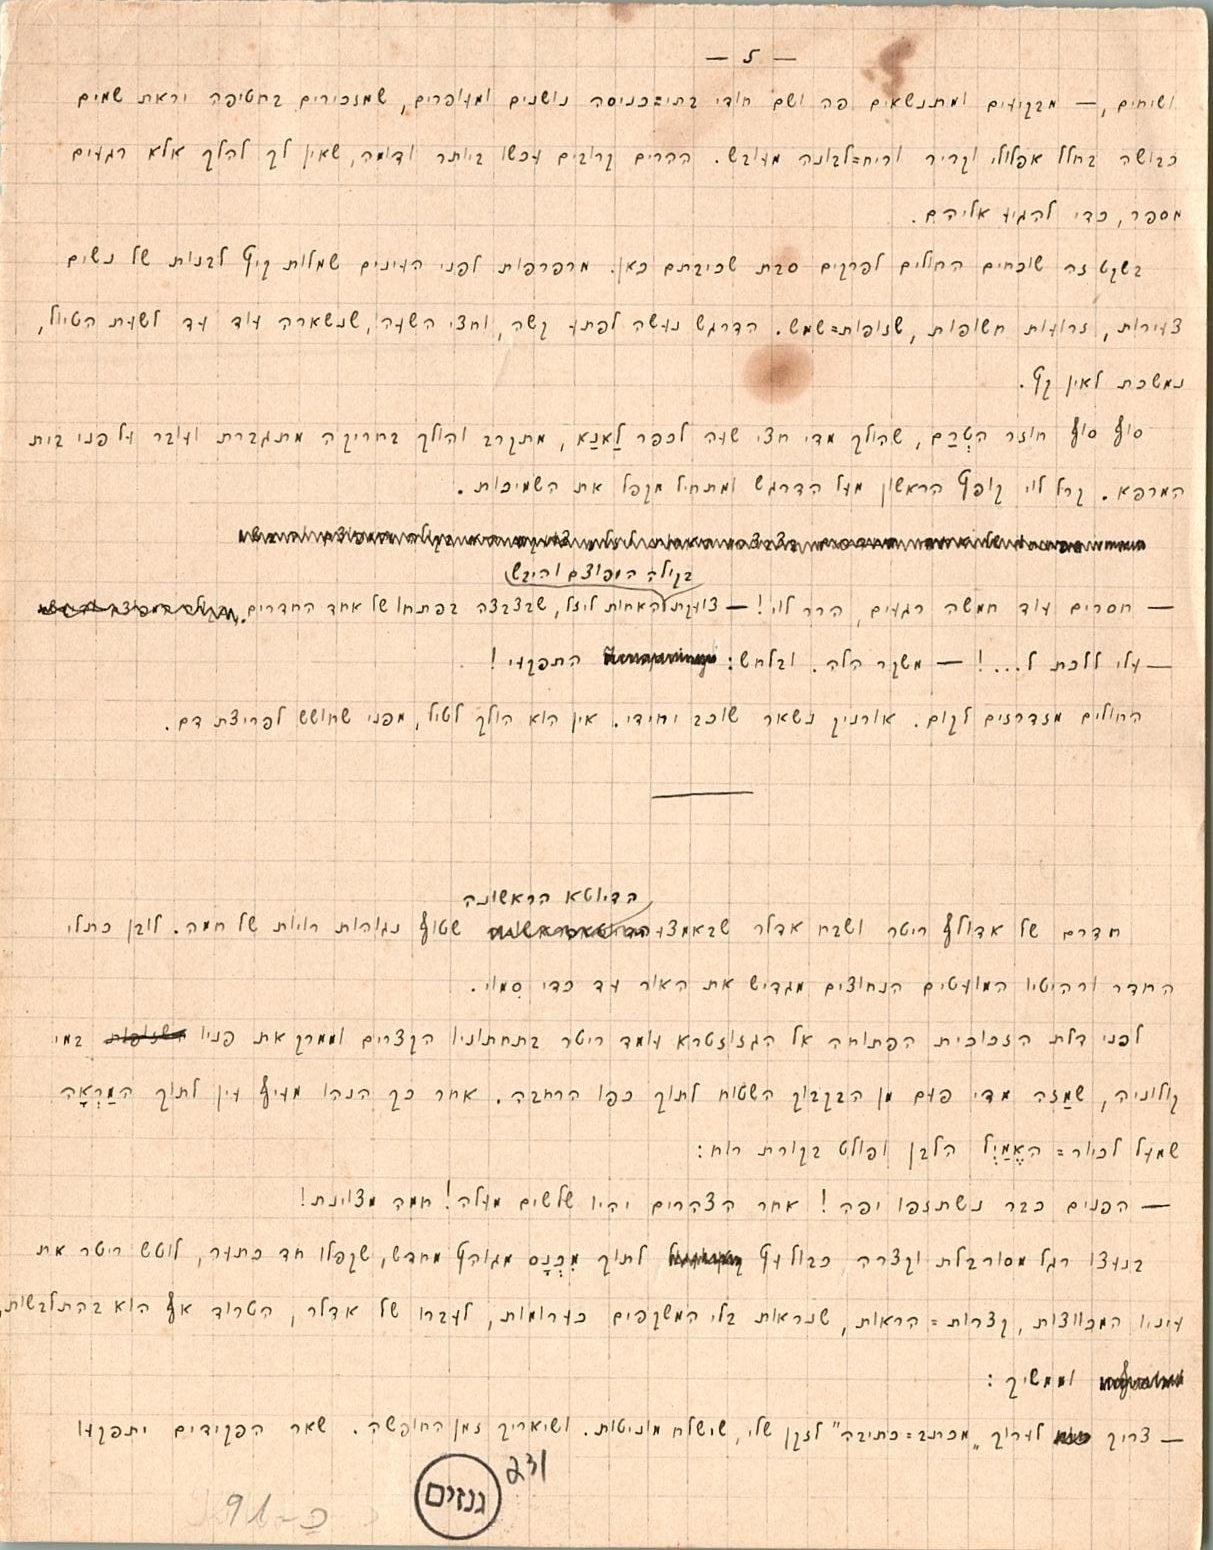 — 5 —
ושיחים, — מבקיעים ומתנשאים פה ושם חודי בתי=כניסה נושנים ומעופרים, שמזכירים בחטיפה יראת שמים
כבושה בחלל אפלולי וקריר וריח=לבונה מעובש. ההרים קרובים עכשו ביותר ודומה, שאין לך להלך אלא רגעים
מספר, כדי להגיע אליהם.
בשקט זה שוכחים החולים לפרקים סבת שכיבתם כאן. מרפרפות לפני העינים שמלות קיץ לבנות של נשים
צעירות, זרועות חשופות, שזופות=שמש. הדרגש נעשה לפתע קשה, וחצי השעה, שנשארה עוד עד לשעת הטיול,
נמשכת לאין קץ.
סוף סוף חוזר הטְרַם, שהולך מדי חצי שעה לכפר לַאנַא, מתקרב והולך בחריקה מתגברת ועובר על פני בית
המרפא. קרל לוי קופץ הראשון מעל הדרגש ומתחיל מקפל את השמיכות.
בקולה המפוצם והיבש
— חסרים עוד חמשה רגעים, הרר לוי! — צועקת האחות ליזל, שבצבצה בפתחו של אחד החדרים.
— עלי ללכת ל...! — משקר הלה. ובלחש: התפקעי!
החולים מזדרזים לקום. אורניק נשאר שוכב יחידי. אין הוא הולך לטיול, מפני שחושש לפריצת דם.
הדיוטא הראשונה
חדרם של אדולף ריטר ושבח אדלר שבאמצע שטוף נגוהות רויות של חמה. לובן כתלי
החדר ורהיטיו המועטים הנחוצים מגדיש את האור עד כדי סִמוי.
לפני דלת הזכוכית הפתוחה אל הגזוזטרא עומד ריטר בתחתוניו הקצרים וממרק את פניו במי
קולוניה, שמַזה מדי פעם מן הבקבוק השטוח לתוך כפו הרחבה. אחר כך הנהו מעיף עין לתוך המַרְאָה
שמעל לכיור= האֶמַיְל הלבן ופולט בקורת רוח:
— הפנים כבר נשתזפו יפה! אחר הצהרים יהיו שלשים מעלה! חמה מצוינת!
בנעצו רגל מסורבלת וקצרה כבול עץ לתוך מִכְנָס מגוהץ מחדש, שקפלו חד כתער, לוטש ריטר את
עיניו המכווצות, קצרות=הראות, שנראות בלי המשקפים כערומות, לעברו של אדלר, הטרוד אף הוא בהתלבשות,
וממשיך:
— צריך לערוך „מכתב=כתיבה" לזקן שלי, שישלח מוניטות. ושיאריך זמן החופשה. שאר הפקידים יתפקעו
231
גנזים